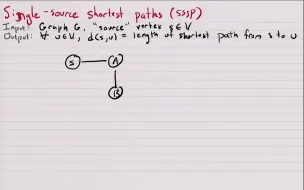 Single-source shortest paths (SSSP)
Input: Graph G, "source" vertex s∈V
Output: ∀ u∈V, d(s,u) = length of shortest path from s to u
S
A
B